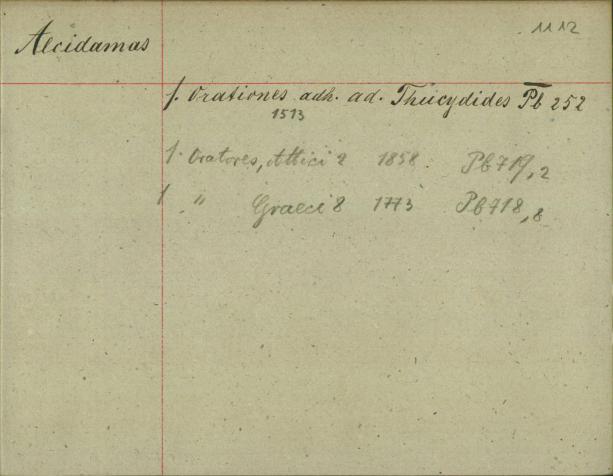 1112
Alcidamas
f. Orationes adh. ad. Thucydides Pb 252
1513
f. Oratores, Attici 2 1858 Pb 719,2
f " Graeci 8 1773 Pb 718,8